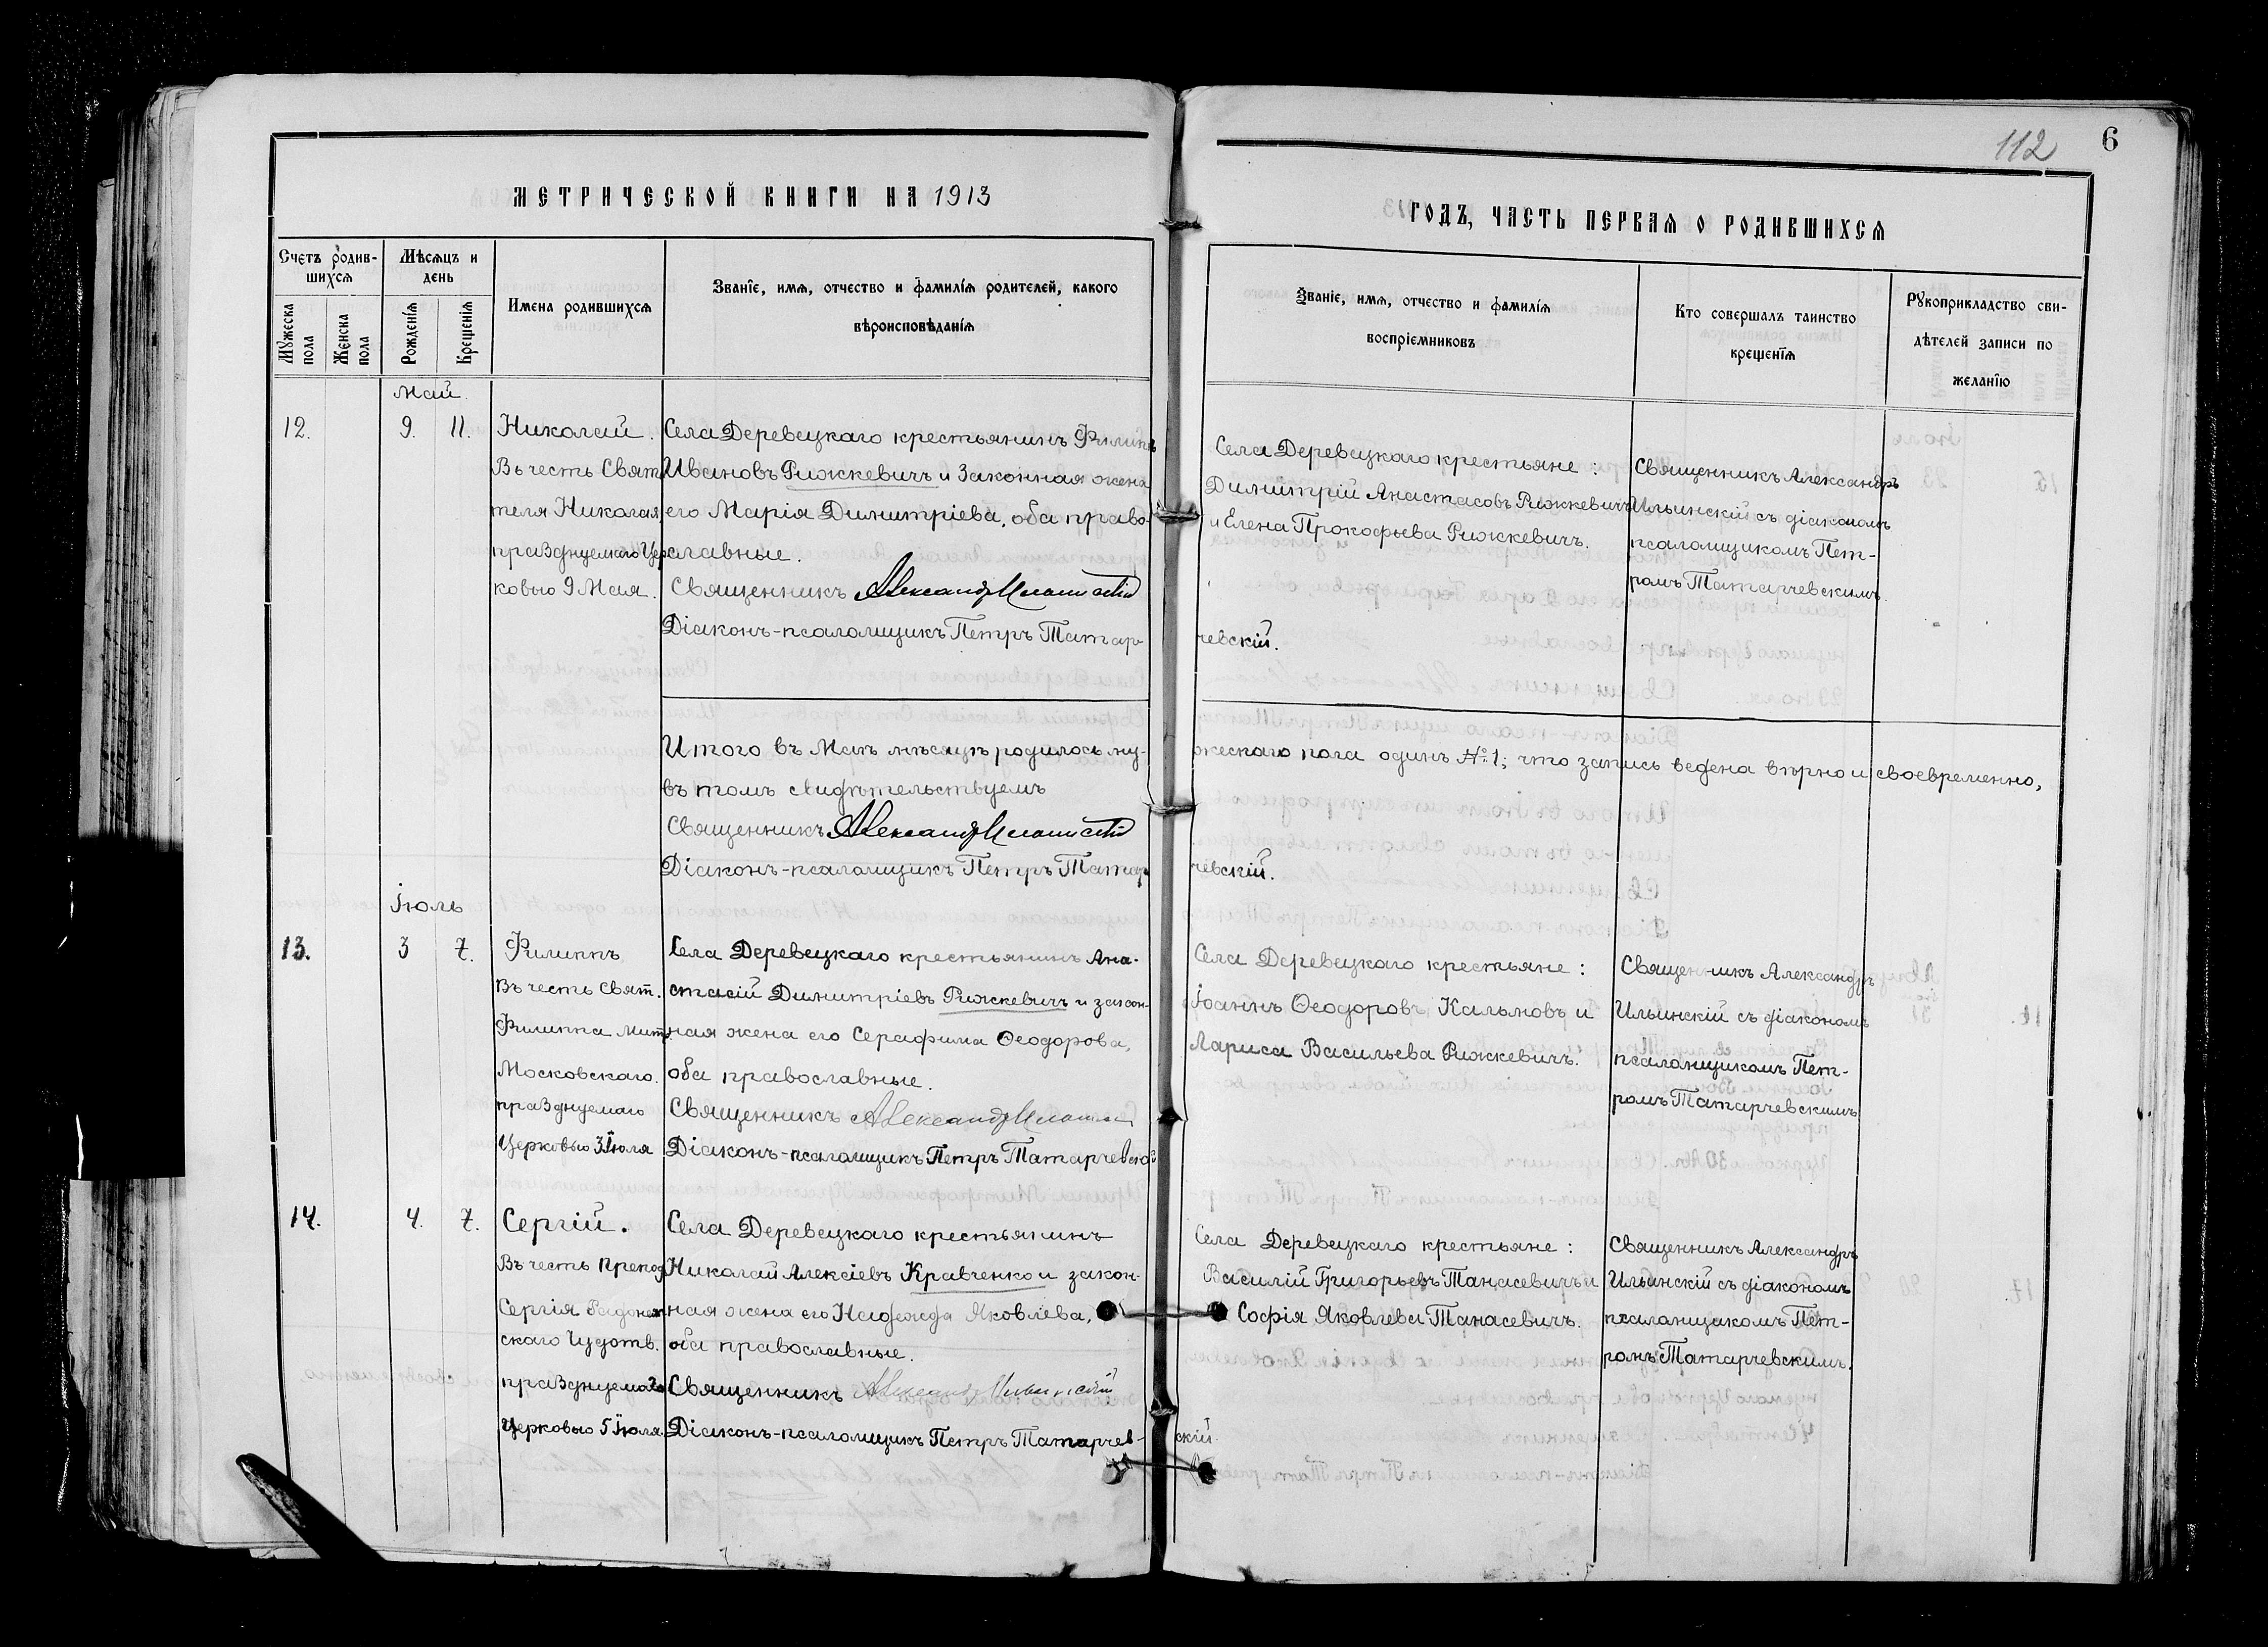 112 6
МЕТРИЧЕСКОЙ КНИГИ НА 1913
ГОДЪ, ЧАСТЬ ПЕРВАЯ О РОДИВШИХСЯ
Счетъ родив-
шихся
Мужеска пола
Женска пола
Мѣсяцъ и
день
Рожденія
Крещенія
Имена родившихся
Званіе, имя, отчество и фамилія родителей, какого
вѣроисповѣданія
Званіе, имя, отчество и фамилія
воспріемниковъ
Кто совершалъ таинство
крещенія
Рукоприкладство сви-
дѣтелей записи по
желанію
Май.
12.
9. 11.
Николай.
Въ честь Свят
теля Николая,
празднуемаго Цер
ковью 9 Мая.
Села Деревецкаго крестьянинъ Филиппъ
Ивановъ Рижкевичъ и законная жена
его Марія Димитріева, оба право-
славные.
Священникъ Александръ Ильинскій
Діаконъ-псаломщикъ Петръ Татар-
чевскій.
Села Деревецкаго крестьяне:
Димитрій Анастасовъ Рижкевичъ
и Елена Прокофьева Рижкевичъ.
Священникъ Александръ
Ильинскій съ діакономъ
псаломщикомъ Пет-
ромъ Татарчевскимъ.
Итого въ Маѣ мѣсяцѣ родилось му-
жескаго пола одинъ № 1; что запись ведена вѣрно и своевременно,
въ томъ свидѣтельствуемъ
Священникъ Александръ Ильинскій
Діаконъ-псаломщикъ Петръ Татар
чевскій.
Іюль
13.
3 7.
Филиппъ
Въ честь Свят.
Филиппа Мит.
Московскаго.
празднуемаго
Церковью 3 Іюля
Села Деревецкаго крестьянинъ Ана-
стасій Димитріевъ Рижкевичъ и закон-
ная жена его Серафима Ѳеодорова,
оба православные.
Священникъ Александръ Ильинскій
Діаконъ-псаломщикъ Петръ Татарчевскій
Села Деревецкаго крестьяне:
Іоаннъ Ѳеодоровъ Кальновъ и
Лариса Васильева Рижкевичъ.
Священникъ Александръ
Ильинскій съ діакономъ
псаломщикомъ Пет-
ромъ Татарчевскимъ
14.
4. 7.
Сергій.
Въ честь Препод
Сергія Радонеж
скаго Чудотв.
празднуемаго
Церковью 5 Іюля.
Села Деревецкаго крестьянинъ
Николай Алексіевъ Кравченко и закон-
ная жена его Надежда Яковлева,
оба православные.
Священникъ Александръ Ильинскій
Діаконъ-псаломщикъ Петръ Татарчев-
скій.
Села Деревецкаго крестьяне:
Василій Григорьевъ Танасевичъ и
Софія Яковлева Танасевичъ.
Священникъ Александръ
Ильинскій съ діакономъ
псаломщикомъ Пет-
ромъ Татарчевскимъ.